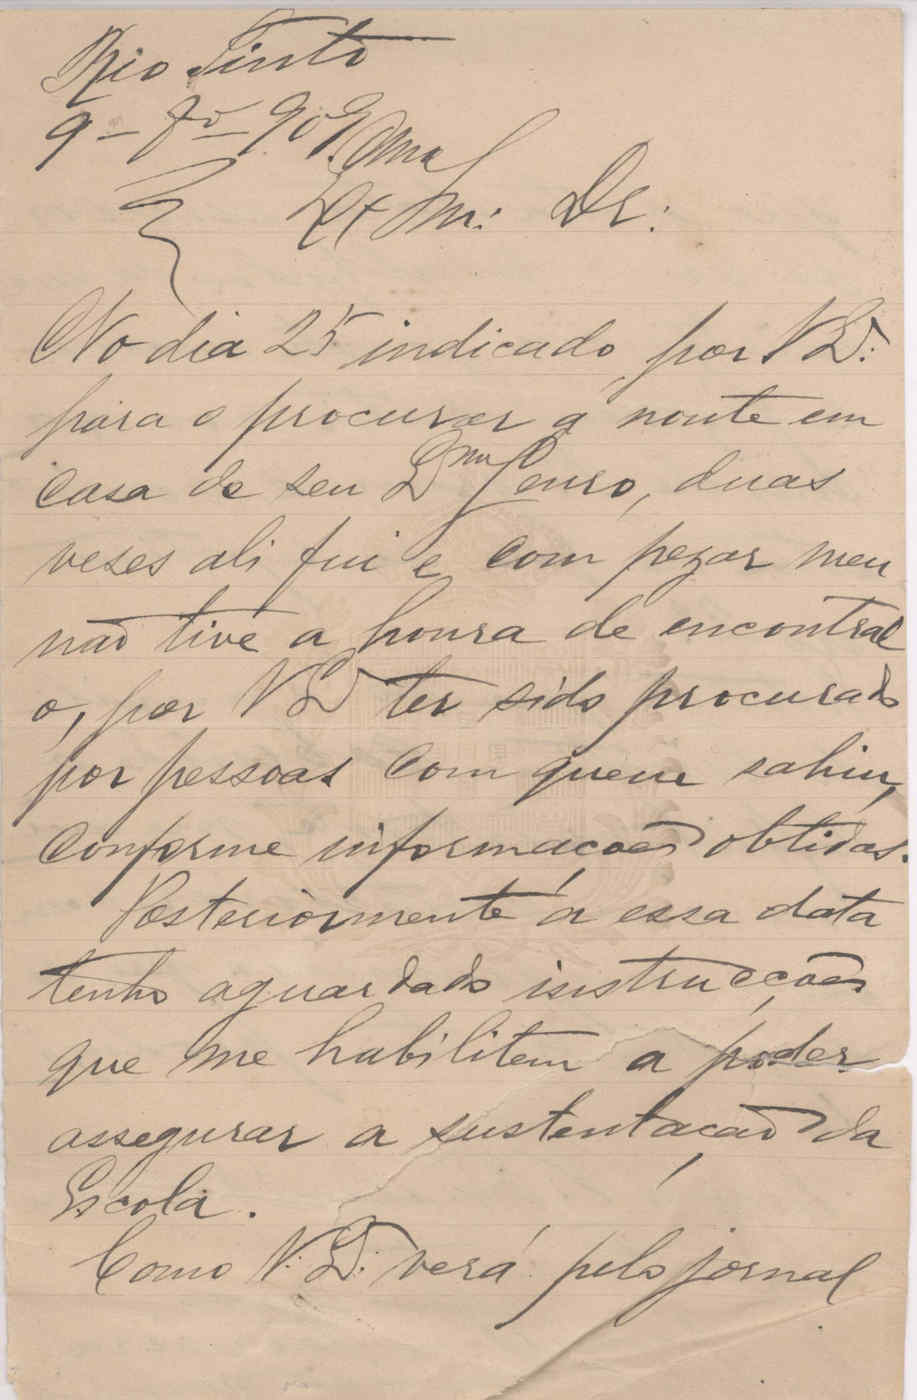 Rio Tinto
9 - 7º - 909
Exmo Snr: Dr:
No dia 25 indicado por V. Ex:
para o procurar á noute em
casa de seu Dmo Genro, duas
veses ali fui e com pezar meu
não tive a honra de encontral
o, por V Ex ter sido procurado
por pessoas com quem sahiu,
conforme informações obtidas.
Posteriormente á essa data
tenho aguardado instrucções
que me habilitem a poder
assegurar a sustentação da
Escola.
Como V. Ex: verá pelo jornal